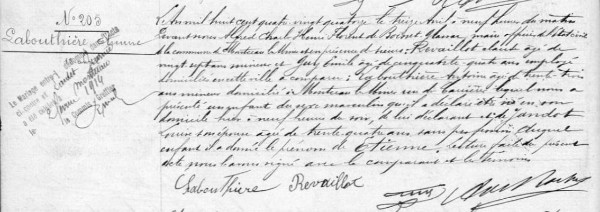 N° 203
Labouthière
Etienne
L'an mil huit cent quatre vingt quatorze le treize Avril à neuf heures du matin
Devant nous Charles Henri Florent de maire officier de l'état civil
de la commune de Montceau les Mines en présence de Revaillot Claude âgé de
vingt sept ans mineur et Guy Emile âgé de cinquante quatre ans employé
domiciliés en cette ville a comparu: Labouthière âgé de trente trois
ans mineur domicilié à Montceau les Mines rue de lequel nous a
présenté un enfant du sexe masculin qu'il a déclaré être né en son
domicile hier à neuf heures du soir, de lui déclarant et de Jandot
Louise son épouse âgée de trente quatre ans sans profession, duquel
enfant il a donné le prénom de Etienne. Lecture faite du présent
acte nous l'avons signé avec le comparant et les témoins
Labouthière Revaillot